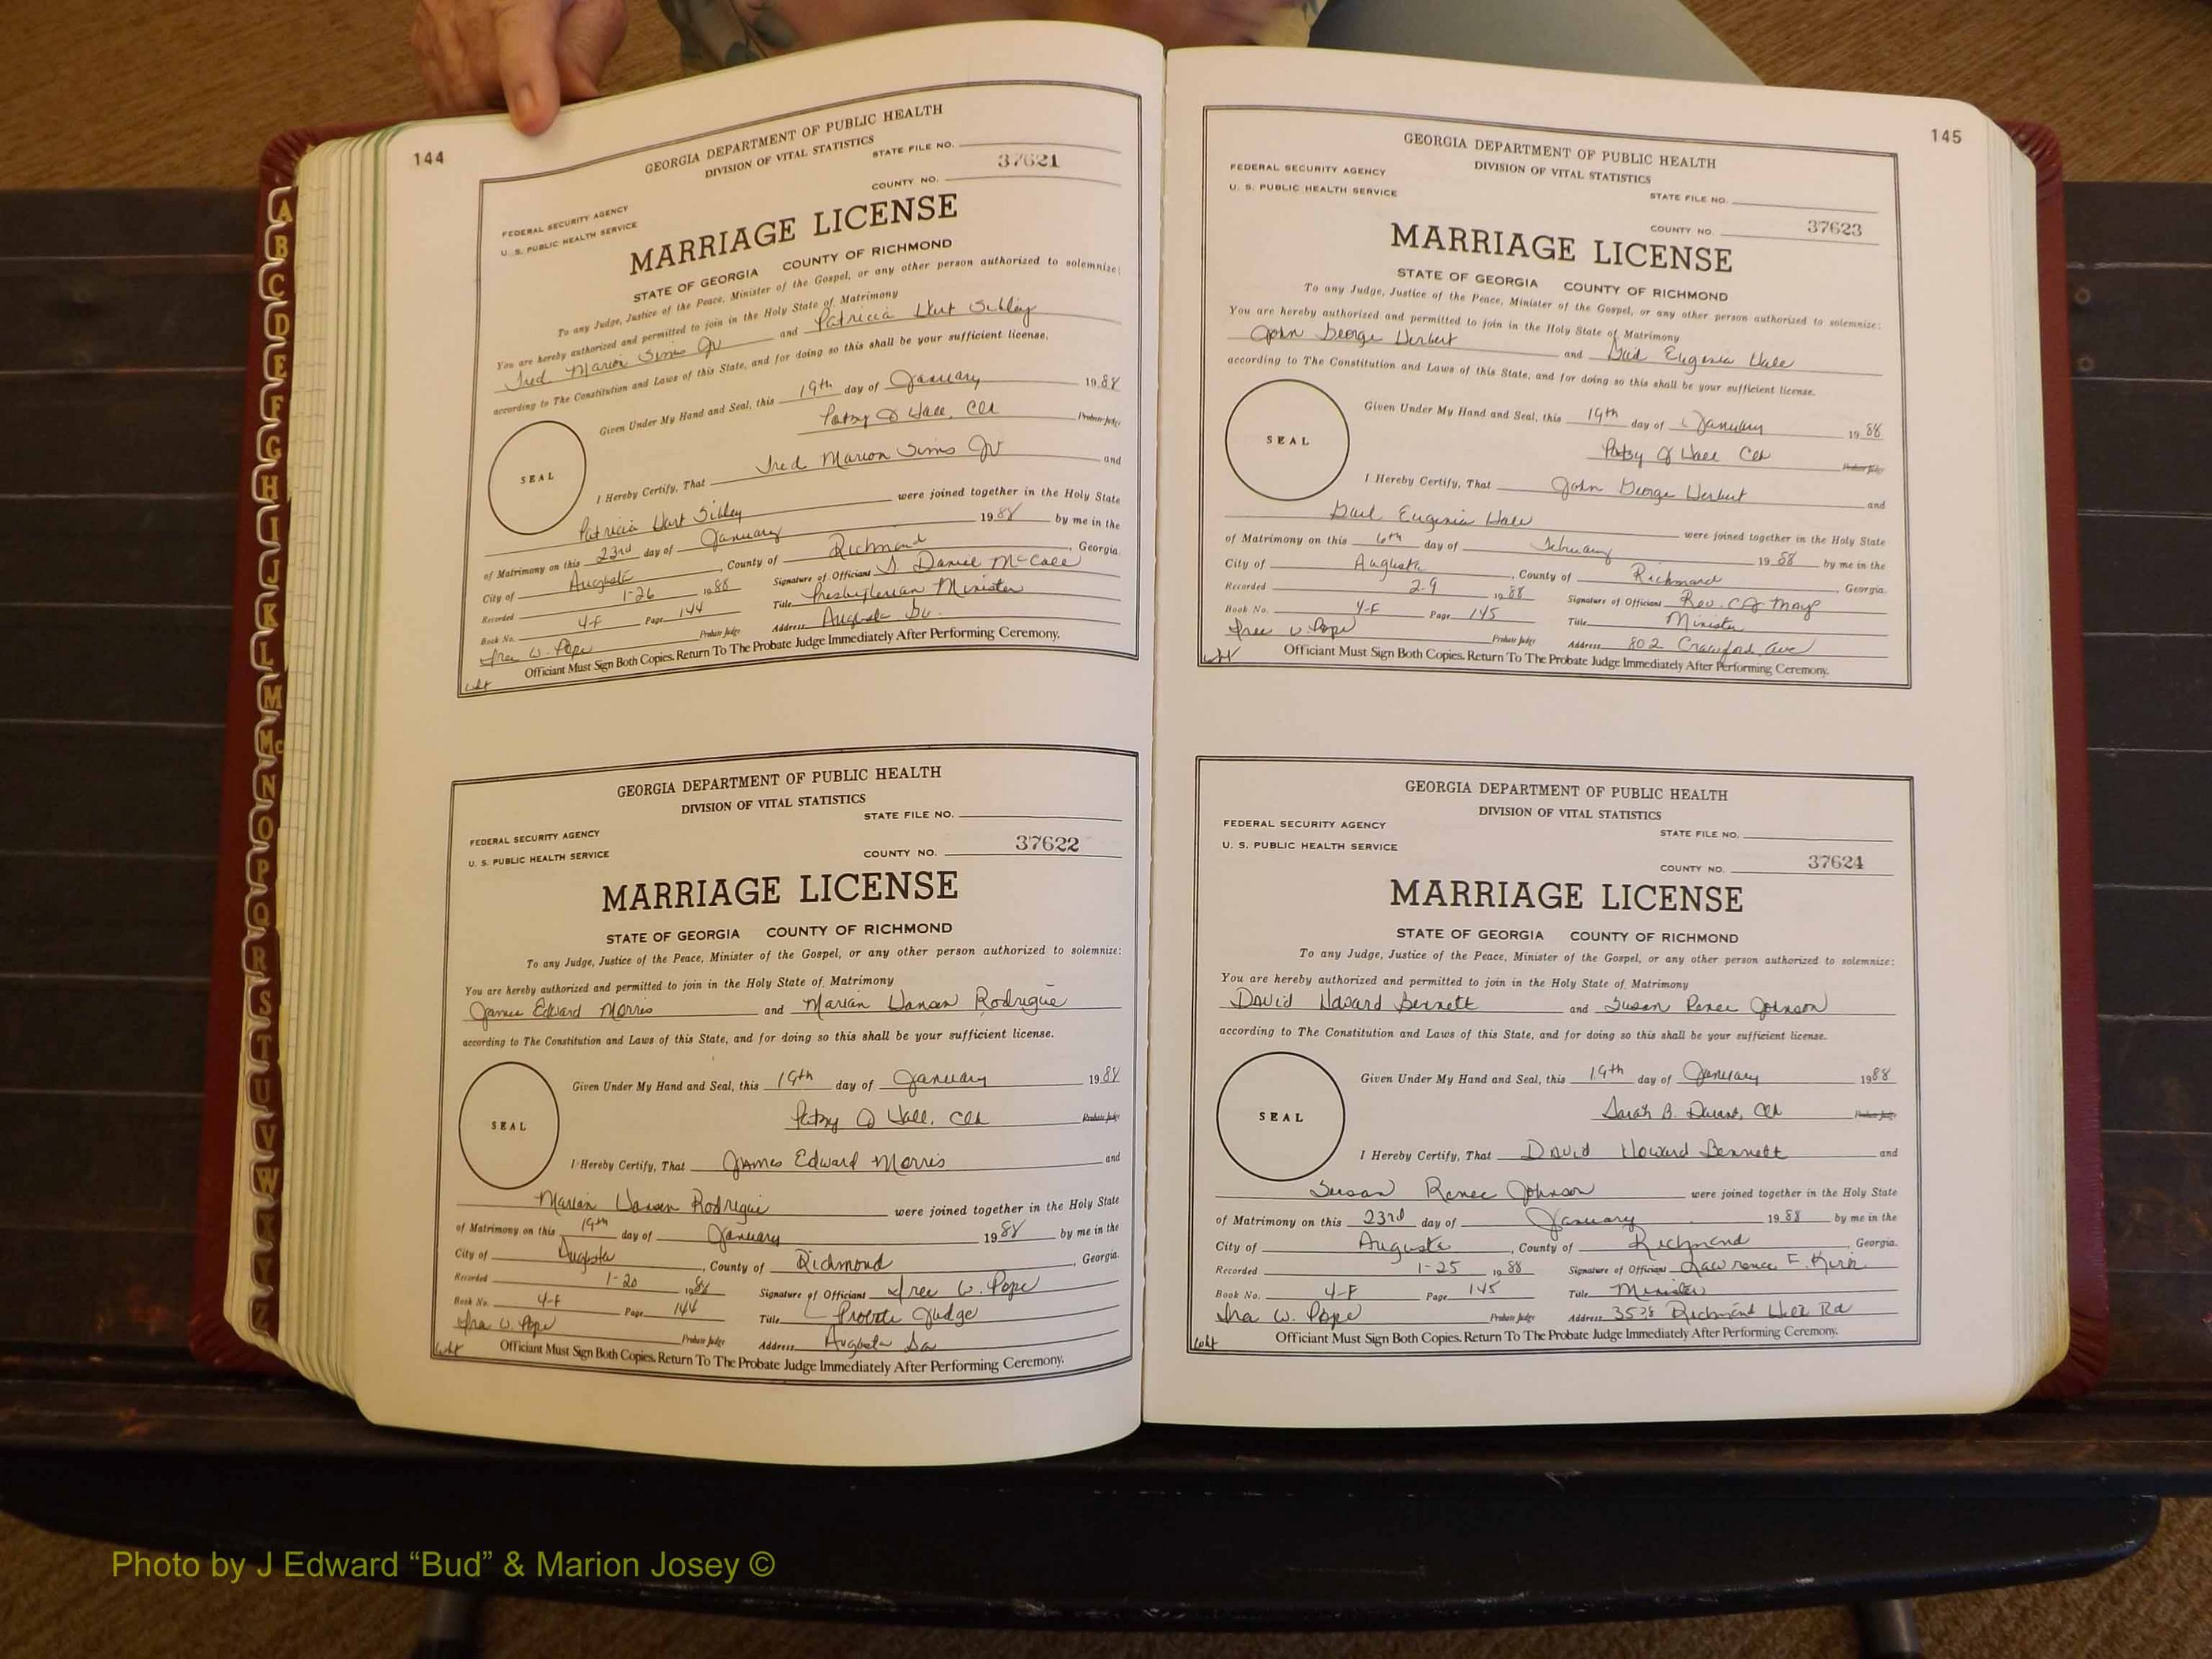 144
GEORGIA DEPARTMENT OF PUBLIC HEALTH
DIVISION OF VITAL STATISTICS
STATE FILE NO.
37621
COUNTY NO.
FEDERAL SECURITY AGENCY
U. S. PUBLIC HEALTH SERVICE
MARRIAGE LICENSE
STATE OF GEORGIA COUNTY OF RICHMOND
To any Judge, Justice of the Peace, Minister of the Gospel, or any other person authorized to solemnize:
You are hereby authorized and permitted to join in the Holy State of Matrimony
Fred Marion Sims Jr and Patricia Hart Sibley
according to The Constitution and Laws of this State, and for doing so this shall be your sufficient license.
Given Under My Hand and Seal, this 19th day of January 1988
Patsy O Hall, Clk Probate Judge
SEAL
I Hereby Certify, That Fred Marion Sims Jr and
Patricia Hart Sibley were joined together in the Holy State
of Matrimony on this 23rd day of January 1988 by me in the
City of Augusta, County of Richmond, Georgia.
Recorded 1-26 1988 Signature of Officiant Daniel McCall
Book No. 4-F Page 144 Title Presbyterian Minister
Ira W. Pope Probate Judge Address Augusta Ga.
Officiant Must Sign Both Copies. Return To The Probate Judge Immediately After Performing Ceremony.
GEORGIA DEPARTMENT OF PUBLIC HEALTH
DIVISION OF VITAL STATISTICS
STATE FILE NO.
FEDERAL SECURITY AGENCY
U. S. PUBLIC HEALTH SERVICE
COUNTY NO. 37622
MARRIAGE LICENSE
STATE OF GEORGIA COUNTY OF RICHMOND
To any Judge, Justice of the Peace, Minister of the Gospel, or any other person authorized to solemnize:
You are hereby authorized and permitted to join in the Holy State of Matrimony
James Edward Morris and Marian Hansen Rodrigue
according to The Constitution and Laws of this State, and for doing so this shall be your sufficient license.
Given Under My Hand and Seal, this 19th day of January 1988
Patsy O Hall, Clk Probate Judge
SEAL
I Hereby Certify, That James Edward Morris and
Marian Hansen Rodrigue were joined together in the Holy State
of Matrimony on this 19th day of January 1988 by me in the
City of Augusta, County of Richmond, Georgia.
Recorded 1-20 1988 Signature of Officiant Ira W. Pope
Book No. 4-F Page 144 Title Probate Judge
Ira W. Pope Probate Judge Address Augusta Ga
Officiant Must Sign Both Copies. Return To The Probate Judge Immediately After Performing Ceremony.
145
GEORGIA DEPARTMENT OF PUBLIC HEALTH
DIVISION OF VITAL STATISTICS
FEDERAL SECURITY AGENCY
U. S. PUBLIC HEALTH SERVICE
STATE FILE NO.
COUNTY NO. 37623
MARRIAGE LICENSE
STATE OF GEORGIA COUNTY OF RICHMOND
To any Judge, Justice of the Peace, Minister of the Gospel, or any other person authorized to solemnize:
You are hereby authorized and permitted to join in the Holy State of Matrimony
John George Herbert and Gail Eugenia Hale
according to The Constitution and Laws of this State, and for doing so this shall be your sufficient license.
Given Under My Hand and Seal, this 19th day of January 1988
Patsy O Hall Clk Probate Judge
SEAL
I Hereby Certify, That John George Herbert and
Gail Eugenia Hale were joined together in the Holy State
of Matrimony on this 6th day of February 1988 by me in the
City of Augusta, County of Richmond, Georgia.
Recorded 2-9 1988 Signature of Officiant Rev. Mays
Book No. 4-F Page 145 Title Minister
Ira W. Pope Probate Judge Address 802 Crawford Ave
Officiant Must Sign Both Copies. Return To The Probate Judge Immediately After Performing Ceremony.
GEORGIA DEPARTMENT OF PUBLIC HEALTH
DIVISION OF VITAL STATISTICS
FEDERAL SECURITY AGENCY
STATE FILE NO.
U. S. PUBLIC HEALTH SERVICE
COUNTY NO. 37624
MARRIAGE LICENSE
STATE OF GEORGIA COUNTY OF RICHMOND
To any Judge, Justice of the Peace, Minister of the Gospel, or any other person authorized to solemnize:
You are hereby authorized and permitted to join in the Holy State of Matrimony
David Howard Bennett and Susan Renee Johnson
according to The Constitution and Laws of this State, and for doing so this shall be your sufficient license.
Given Under My Hand and Seal, this 19th day of January 1988
Sarah B. Clk Probate Judge
SEAL
I Hereby Certify, That David Howard Bennett and
Susan Renee Johnson were joined together in the Holy State
of Matrimony on this 23rd day of January 1988 by me in the
City of Augusta, County of Richmond, Georgia.
Recorded 1-25 1988 Signature of Officiant Lawrence E. Kirk
Book No. 4-F Page 145 Title Minister
Ira W. Pope Probate Judge Address 3538 Richmond Hill Rd
Officiant Must Sign Both Copies. Return To The Probate Judge Immediately After Performing Ceremony.
A
B
C
D
E
F
G
H
I
J
K
L
M
Mc
N
O
P
Q
R
S
T
U
V
W
X
Y
Z
Photo by J Edward “Bud” & Marion Josey ©